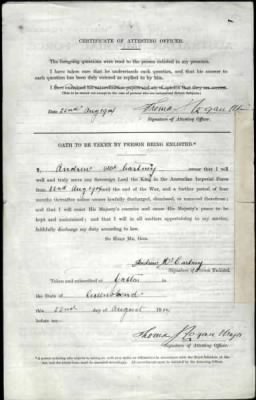 CERTIFICATE OF ATTESTING OFFICER.
The foregoing questions were read to the person enlisted in my presence.
I have taken care that he understands each question, and that his answer to
each question has been duly entered as replied to by him.
Date 22nd Aug
Signature of Attesting Officer.
OATH TO BE TAKEN BY PERSON BEING ENLISTED.*
I, Andrew McCartney swear that I will
well and truly serve our Sovereign Lord the King in the Australian Imperial Force
from 22nd Aug until the end of the War, and a further period of four
months thereafter unless sooner lawfully discharged, dismissed, or removed therefrom; and
that I will resist His Majesty's enemies and cause His Majesty's peace to be
kept and maintained; and that I will in all matters appertaining to my service,
faithfully discharge my duty according to law.
SO HELP ME, GOD.
Andrew McCartney
Signature of Person Enlisted.
Taken and subscribed at
in
the State of Queensland
this 22nd day of August
before me—
Signature of Attesting Officer.